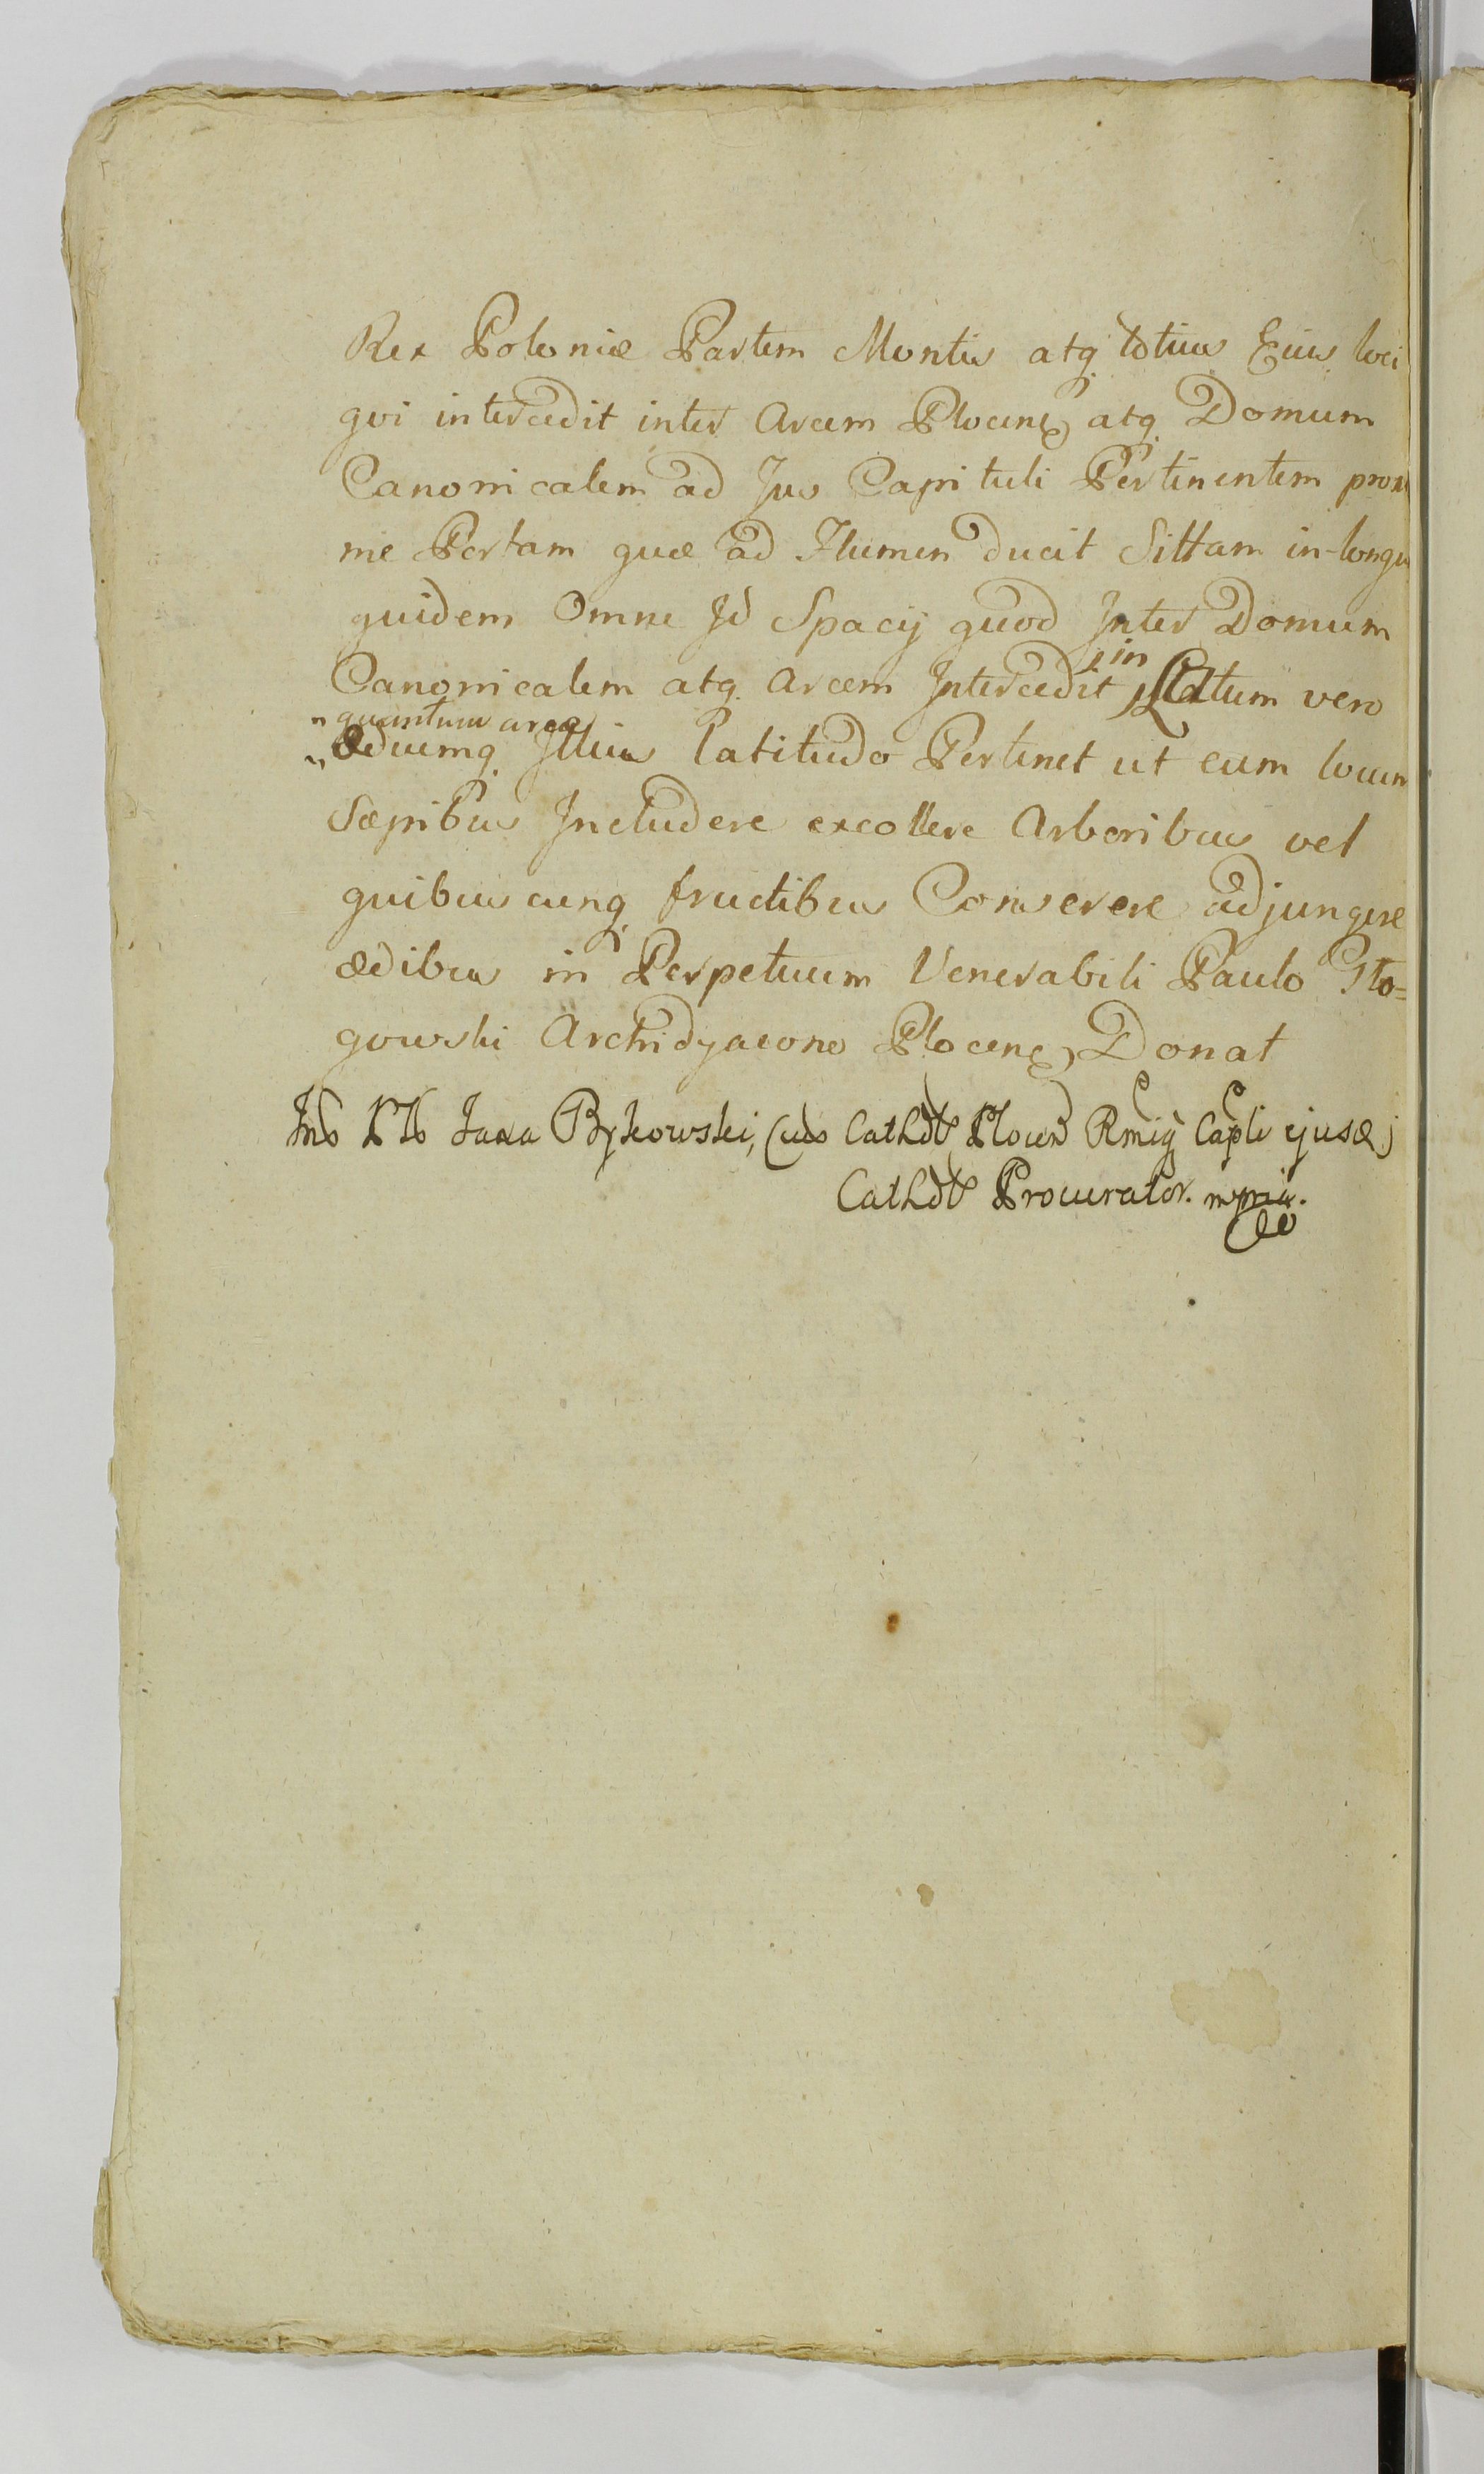 Rex Poloniæ Partem Montis atq totius Eius loci
qvi intercedit inter Arcem Plocens atq Domum
Canonicalem ad Jus Capituli Pertinentem proxi
me Portam quæ ad Flumen ducit Sittam in longu
quidem Omne Id Spacij quod Inter Domum
Canonicalem atq. Arcem Intercedit in Latum vero
quantum area
ædiumq Illius Latitudo Pertinet ut eum locum
Sæpibus Includere excollere Arboribus vel
quibuscunq fructibus Conserere adjungere
ædibus in Perpetuum Venerabili Paulo Gło=
gowski Archidyacono Plocens Donat
Jaxa Bykowski, Cathdr Plocen Rmi Capli ejusd
Cathdr Procurator. mpria.